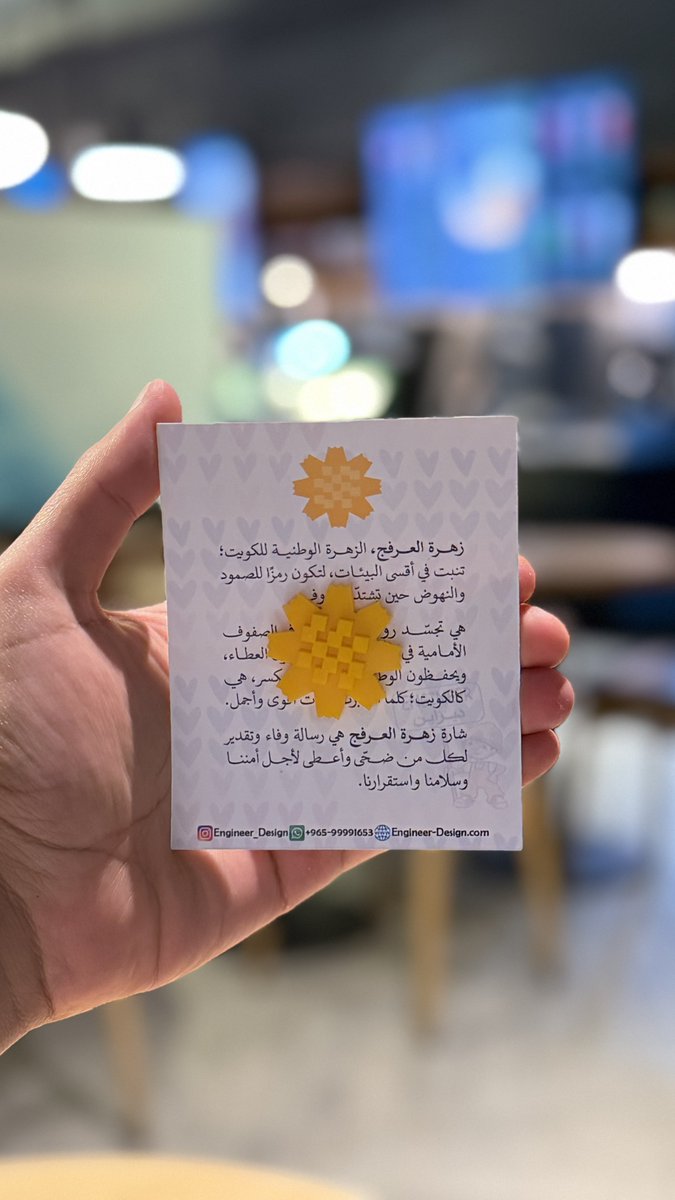 زهرة العرفج، الزهرة الوطنية للكويت؛
تنبت في أقسى البيئات، لتكون رمزًا للصمود
والنهوض حين تشتدّ
هي تجسّد الصفوف
الأمامية في العطاء،
ويحفظون
كالكويت؛ كلما أقوى وأجمل.
شارة زهرة العرفج هي رسالة وفاء وتقدير
لكل من ضحّى وأعطى لأجل أمننا
وسلامنا واستقرارنا.
Engineer_Design +965-99991653 Engineer-Design.com